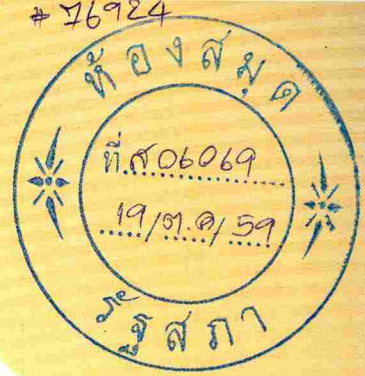 # 76924
ห้องสมุด
ที่ ส06069
19/ต.ค/59
รัฐสภา